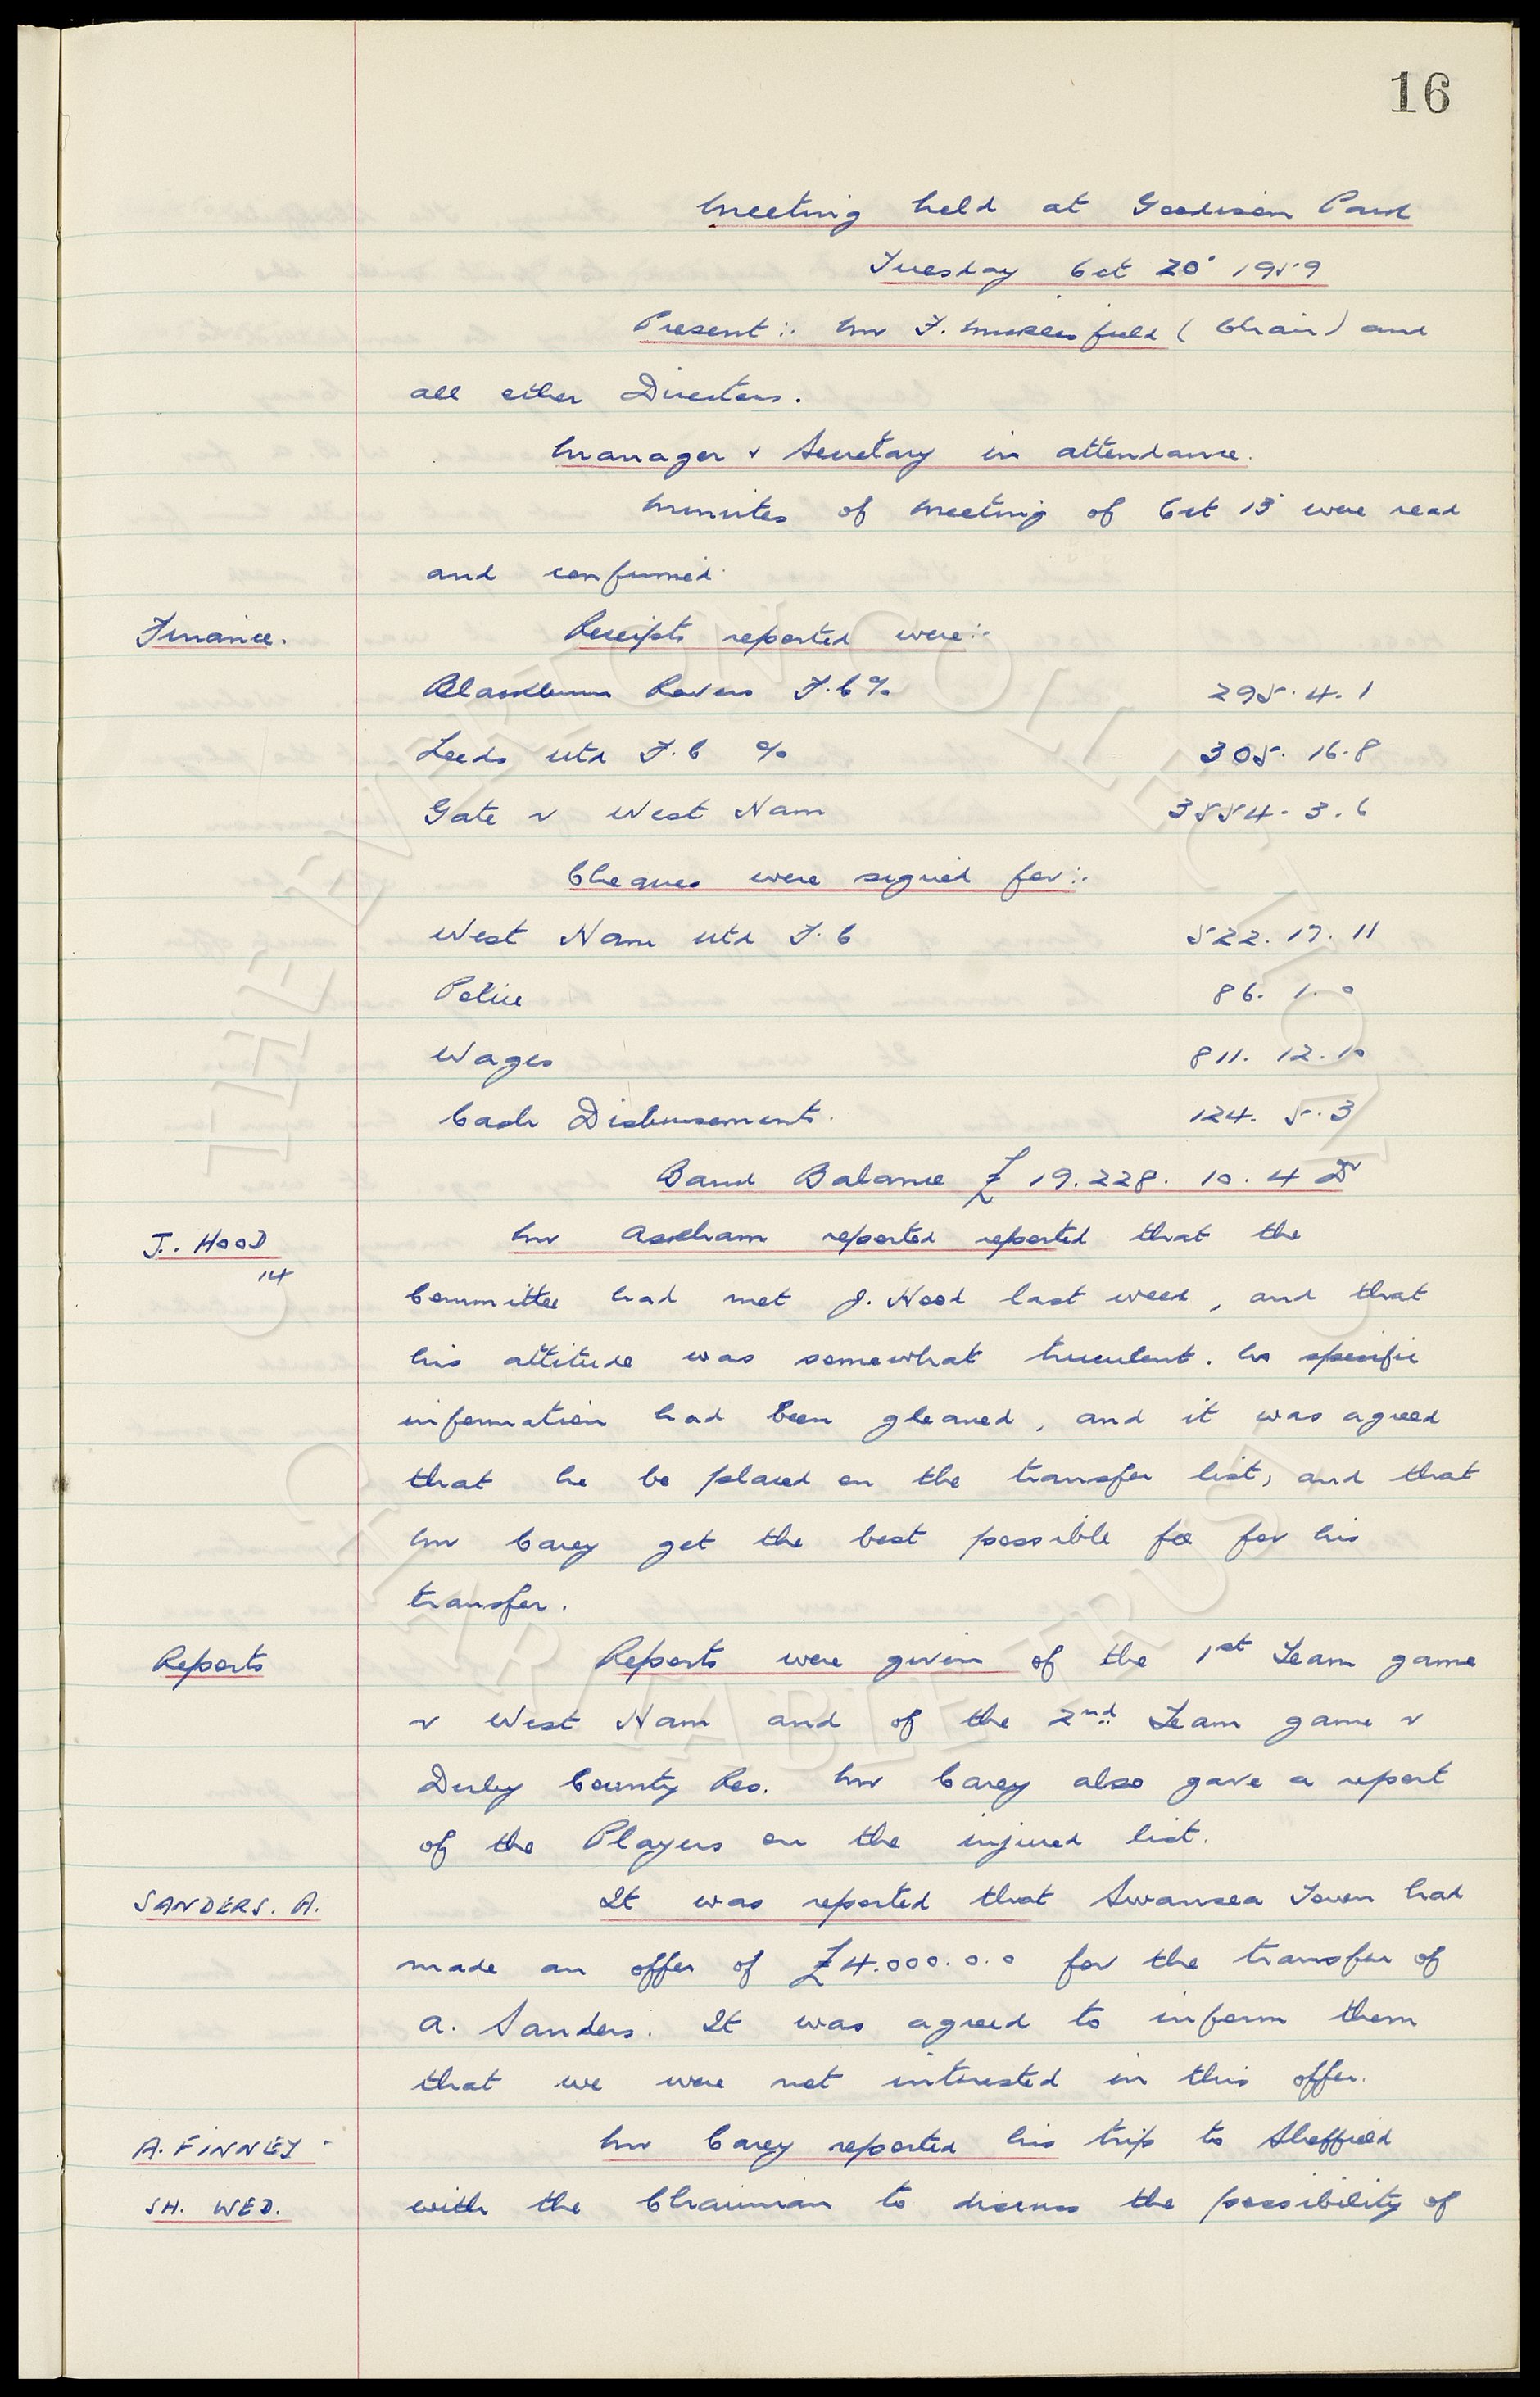 16
Meeting held at Goodison Park
Tuesday Oct 20' 1959
Present:- Mr F. Micklesfield (Chair) and
all other Directors.
Manager & Secretary in attendance.
Minutes of Meeting of Oct 13' were read
and confirmed.
Finance. Receipts reported were:-
Blackburn Rovers F.C % 295. 4. 1
Leeds Utd F.C % 305. 16. 8
Gate v West Ham 3554. 3. 6
Cheques were signed for:-
West Ham Utd F.C 522. 17. 11
Police 86. 1. 0
Wages 811. 12. 10
Cash Disbursements. 124. 5. 3
Bank Balance £19.228. 10. 4 Dr
J. HOOD Mr Askham reported reported that the
14
Committee had met J. Hood last week, and that
his attitude was somewhat truculent. No specific
information had been gleaned, and it was agreed
that he be placed on the transfer list, and that
Mr Carey get the best possible fee for his
transfer.
Reports Reports were given of the 1st Team game
v West Ham and of the 2nd Team game v
Derby County Res. Mr Carey also gave a report
of the Players on the injured list.
SANDERS. A. It was reported that Swansea Town had
made an offer of £4.000.0.0 for the transfer of
A. Sanders. It was agreed to inform them
that we were not interested in this offer.
A. FINNEY. Mr Carey reported his trip to Sheffield
SH. WED. with the Chairman to discuss the possibility of
THE EVERTON COLLECTION
CHARITABLE TRUST